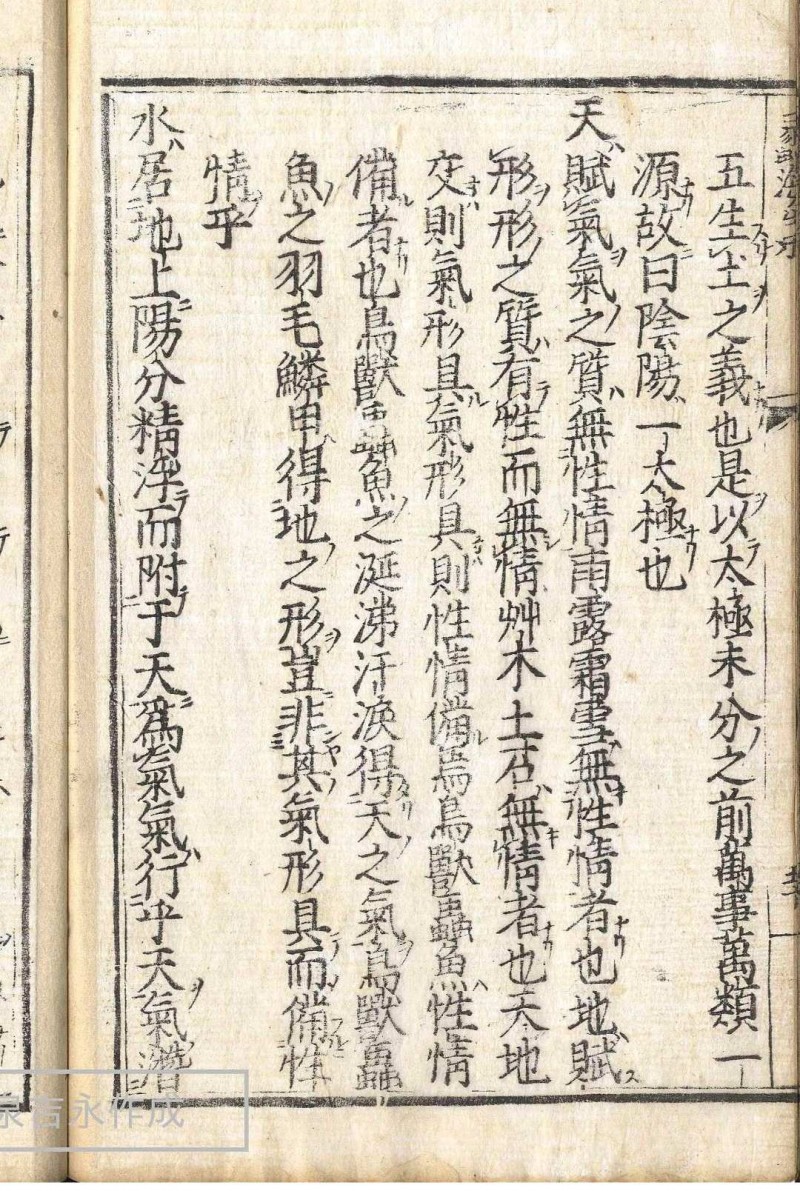 五生土之義也是以太極未分之前萬事萬類一
源故曰陰陽一太極也
天賦氣氣之質無性情雨露霜雪無性情者也地賦
形形之質有性而無情艸木土石無情者也天地
交則氣形具氣形具則性情備焉鳥獸蟲魚性情
備者也鳥獸蟲魚之涎涕汗淚得天之氣鳥獸蟲
魚之羽毛鱗甲得地之形豈非其氣形具而備性
情乎
水居地上陽分精浮而附于天爲氣氣行乎天氣潛
泉吉永作成